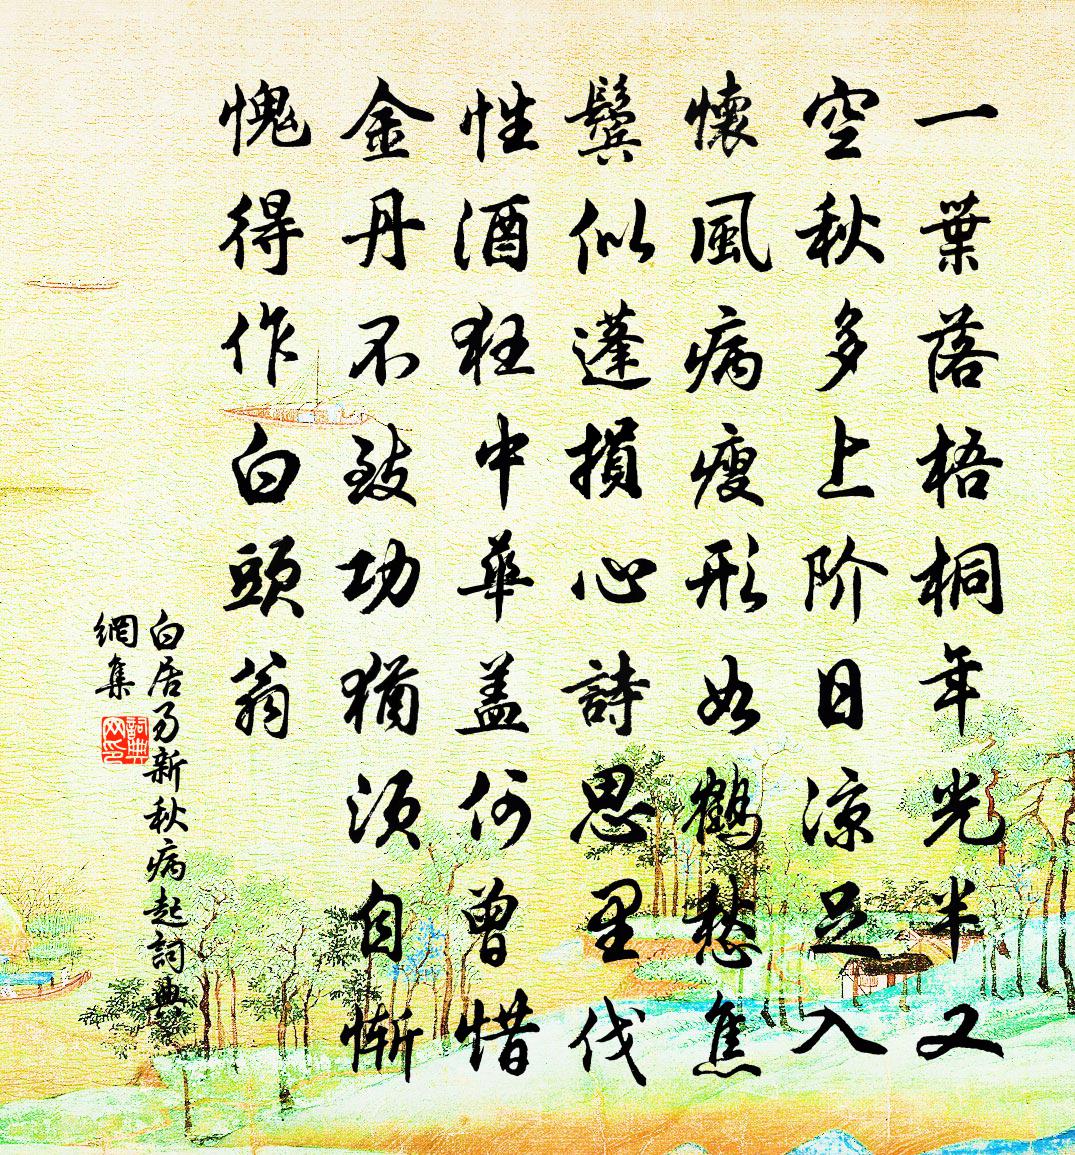 一葉落梧桐年光半又
空秋多上阶日凉足入
懷風病瘦形如鶴愁焦
鬢似蓬損心詩思里伐
性酒狂中華盖何曾惜
金丹不致功猶須自慚
愧得作白頭翁
白居易新秋病起詞典
網集
詞典网印